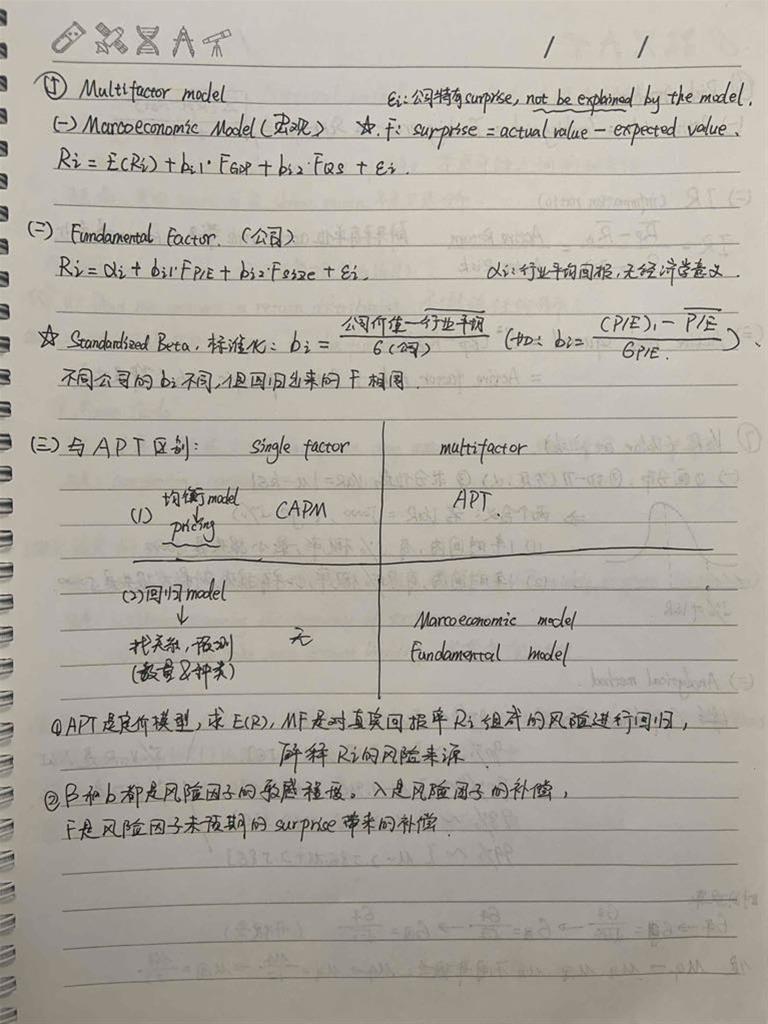 / /
① Multifactor model εi:公司特有surprise, not be explained by the model.
(一) Marcoeconomic Model (宏观) ☆. F: surprise = actual value - expected value.
Ri = E(Ri) + bi1· FGDP + bi2· FQS + εi.
(二) Fundamental Factor. (公司)
Ri = αi + bi1·FP/E + bi2·Fsize + εi. αi:行业平均回报,无经济学意义.
☆ Standardized Beta. 标准化: bi = 公司价值-行业平均 / б(公司) (如: bi = (P/E)1 - P/E / бP/E.)、
不同公司的bi不同,但回归出来的F相同.
(三) 与APT区别: Single factor multifactor
均衡model
(1) ↓ CAPM APT.
pricing
(2)回归model Marcoeconomic model
↓ 无
找关系,预测 Fundamental model
(数量&种类)
①APT是定价模型,求E(R), MF是对真实回报率Ri组成的风险进行回归,
解释Ri的风险来源.
②β和b都是风险因子的敏感程度。λ是风险因子的补偿,
F是风险因子未预期的surprise带来的补偿.